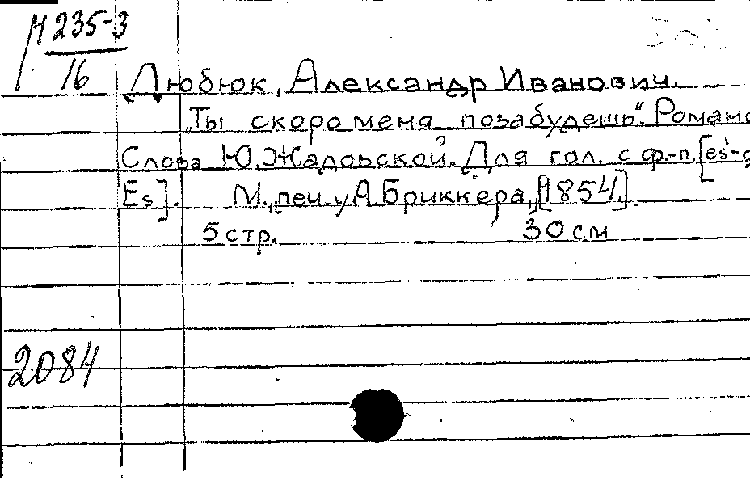 М 235-3
16
Дюбюк, Александр Иванович.
"Ты скоро меня позабудешь". Романс
Слова Ю. Жадовской. Для гол. с ф.-п. [es¹-
Es]. М., печ. у А. Бриккера, [1854].
5 стр. 30 см
2084